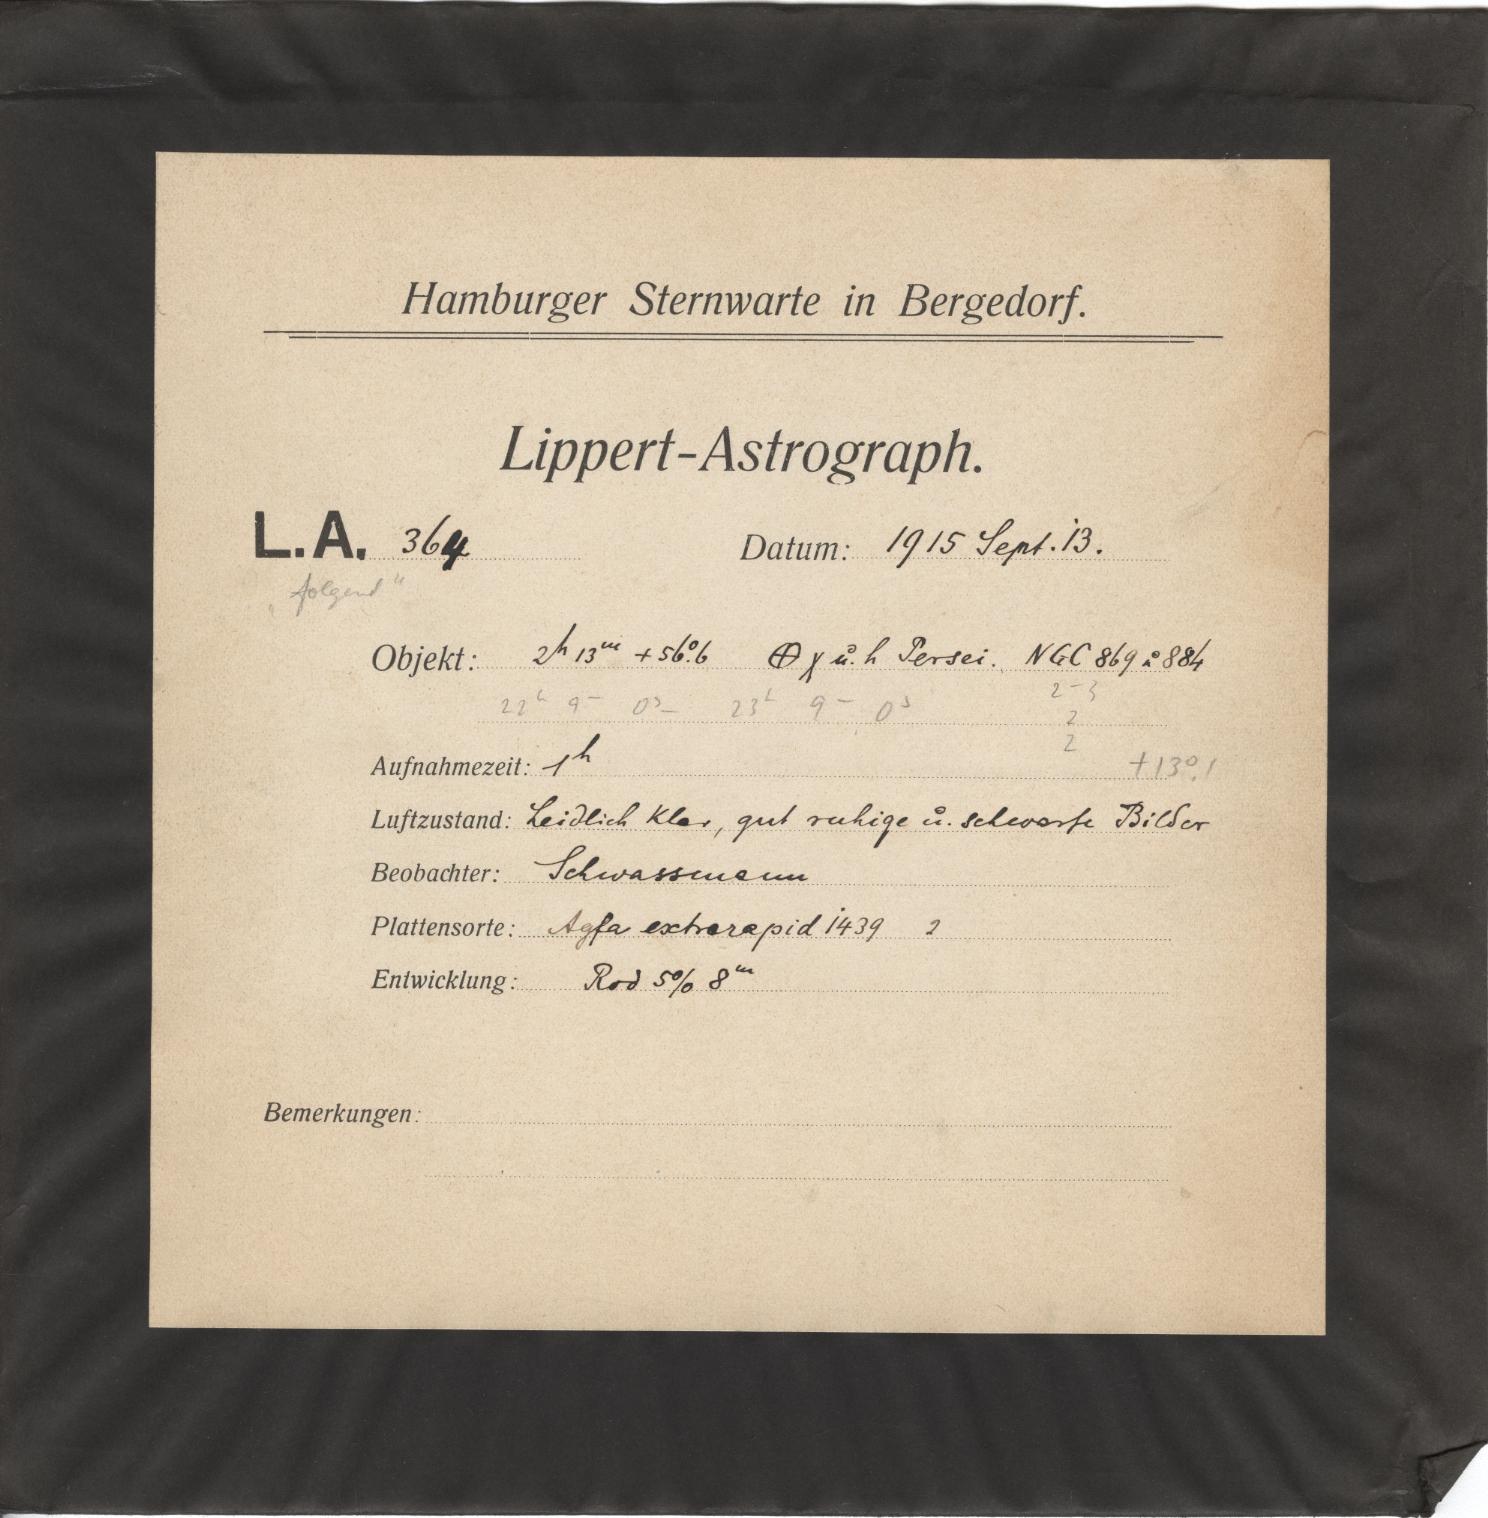 Hamburger Sternwarte in Bergedorf.
Lippert-Astrograph.
L.A. 364 Datum: 1915 Sept. 13.
"folgend"
Objekt: 2h 13m +56°.6 ⊕ χ u. h Persei. NGC 869 u 884
22h 9m 0s 23h 9m 0s 2-3
2
2
Aufnahmezeit: 1h +13°.1
Luftzustand: Leidlich klar, gut ruhige u. scharfe Bilder
Beobachter: Schwassmann
Plattensorte: Agfa extrarapid 1439 2
Entwicklung: Rod 5% 8m
Bemerkungen: